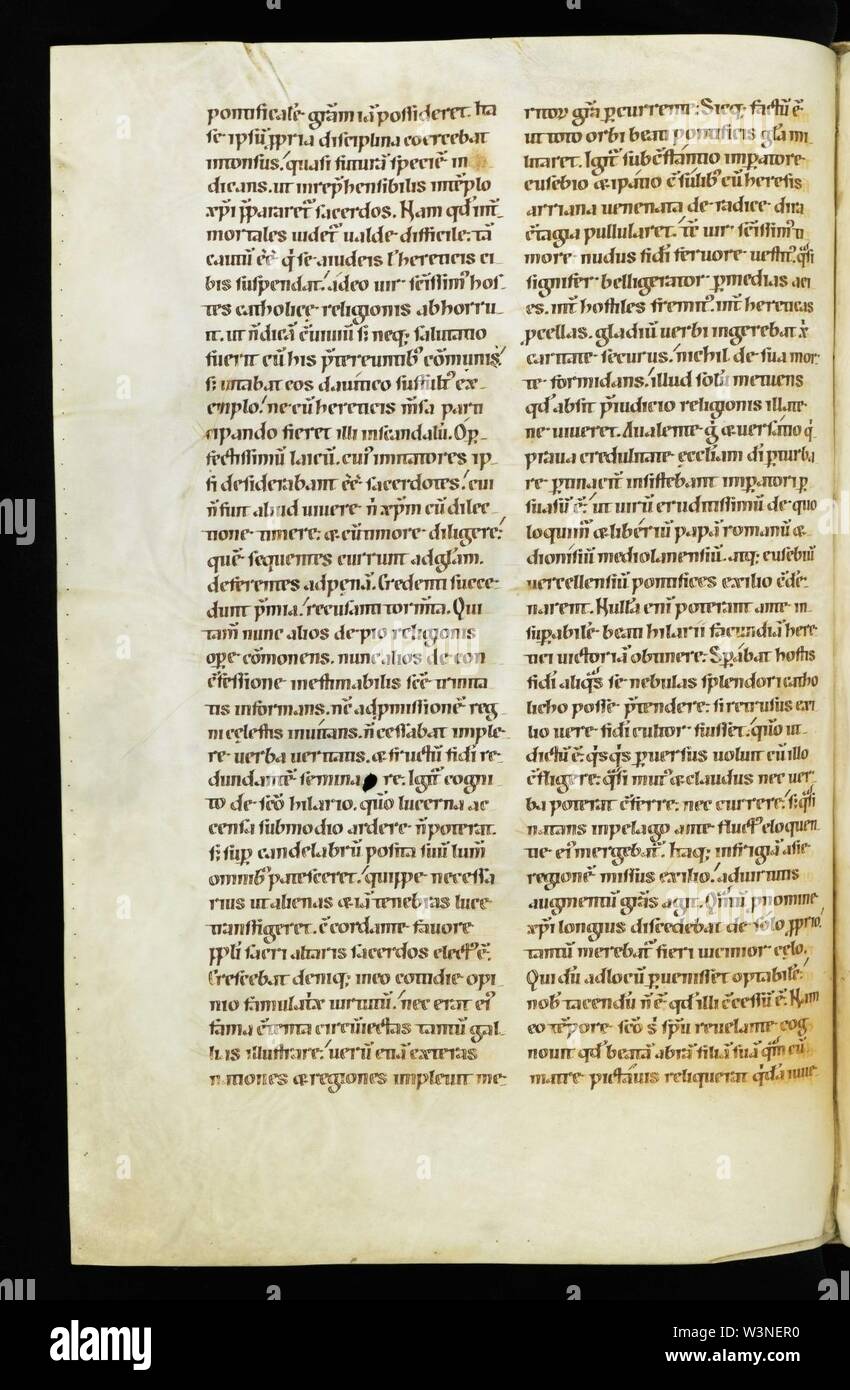 pontificalē grām iā possideret. Ita
se ipsū ꝓpria disciplina coercebat
intonsus. quasi futurā speciē in
dicans. ut inrep̄hensibilis intēplo
xp̄i p̄pararet᷑ sacerdos. Nam qd̓ int̄
mortales uidet᷑ ualde difficile. tā
cautū ēē q̓ se a iudeis ł hereticis ci
bis suspendat. adeo uir sc̄issim᷒ hos
tes catholicę religionis abhorru
it. ut n̄ dicā c̄uiuiū s; neq; salutatio
fuerit cū his p̄tereuntib᷒ cōmunis.
emplo. ne cū hereticis m̄sa parti
cipando fieret illi inscandalū. O ꝑ
fectissimū laicū. cui᷒ imitatores ip
si desiderabant ēē sacerdotes. cui
n̄ fuit aliud uiuere. n̄ xp̄m cū dilec
tione timere. & cū timore diligere.
quē sequentes currunt ad gl̄am.
deferentes ad penā. Credenti succe
dunt p̄mia. recusanti torm̄ta. Qui
tam̄ nunc alios de pio religionis
ope cōmonens. nunc alios de con
c̄fessione inestimabilis sc̄ę trinita
tis informans. n̄c ad ꝓmissionē reg
ni celestis inuitans. n̄ cessabat imple
re uerba ueritans. & fructū fidi re
dundantē semina re. Igit᷑ cogni
to de sc̄o hilario. quō lucerna ac
censa sub modio ardere n̄ poterat.
s; sup candelabrū posita suū lum̄
omnib᷒ patesceret. quippe necessa
rius utalienas & iā tenebras luce
transfigeret. c̄cordante fauore
pp̄li sacri altaris sacerdos elect᷒ ē.
Crescebat deniq; in eo cotidie opi
nio famulatrix uirtutū. nec erat ei᷒
fama c̄tenta circūiectas tantū gal
lias illustrare. uerū etiā exteras
nationes & regiones impleuit me
ritoꝝ grā ꝑcurrenti. Sicq; factū ē
ut toto orbi beati pontificis grā mi
litaret. Igit᷑ sub c̄stantio imperatore
eusebio & ipatio c̄sulib᷒ cū heresis
arriana uenenata de radice dira
c̄tagia pullularet. tc̄ uir sc̄issim᷒ ti
more nudus fidi feruore uestit᷒. q̓si
signifer belligerator ꝑ medias aci
es. int̄ hostiles fremit᷒. int̄ hereticas
ꝓcellas. gladiū uerbi ingerebat x̄
caritate securus. nichil de sua mor
te formidans. illud solū metuens
qd̓ absit p̄iudicio religionis illate
ne uiueret. A ualente g̓ & uersatio q̓
praua credulitate ecclīam di ꝑturba
re ꝑtinacit᷑ insistebant imperatori ꝑ
suasū ē. ut uirū eruditissimū de quo
loquim᷑ & liberiū papā romanū &
dionisiū mediolanensiū. atq; eusebiū
uercellensiū pontifices exilio c̄dē
narent. Nulla eni᷒ poterant ante in
supabilē beati hilarii facundiā here
tici uictoriā obtinere. Sp̄abat hostis
fidi aliq̓s se nebulas splendori catho
lico posse p̄tendere. si retrusus exi
lio uere fidi cultor fuisset. quō ut
dictū ē. q̓sq̓s ꝑuersus uoluit cū illo
c̄fligere. q̓si mut᷒ & claudus nec uer
ba poterat c̄ferre. nec currere. s; q̓si
natans in pelago ante fluct᷒ eloquen
tie ei᷒ mergebat᷑. Itaq; in frigiā asie
regionē missus exilio. ad uirtutis
augmentū grās agit. Qm̄ ꝓ nomine
xp̄i longius discedebat de solo ꝓprio.
tantū merebat᷑ fieri uicinior cęlo.
Qui dū ad locū ꝑuenisset optabilē.
nob̄ tacendū n̄ ē qd̓ illi c̄cessū ē. Nam
eo tēpore sc̄o s̄ spū reuelante cog
nouit qd̓ beatā abrā filiā suā q̓m cū
matre pictauis reliquerat
a alamy
alamy
Image ID: W3NER0
www.alamy.com